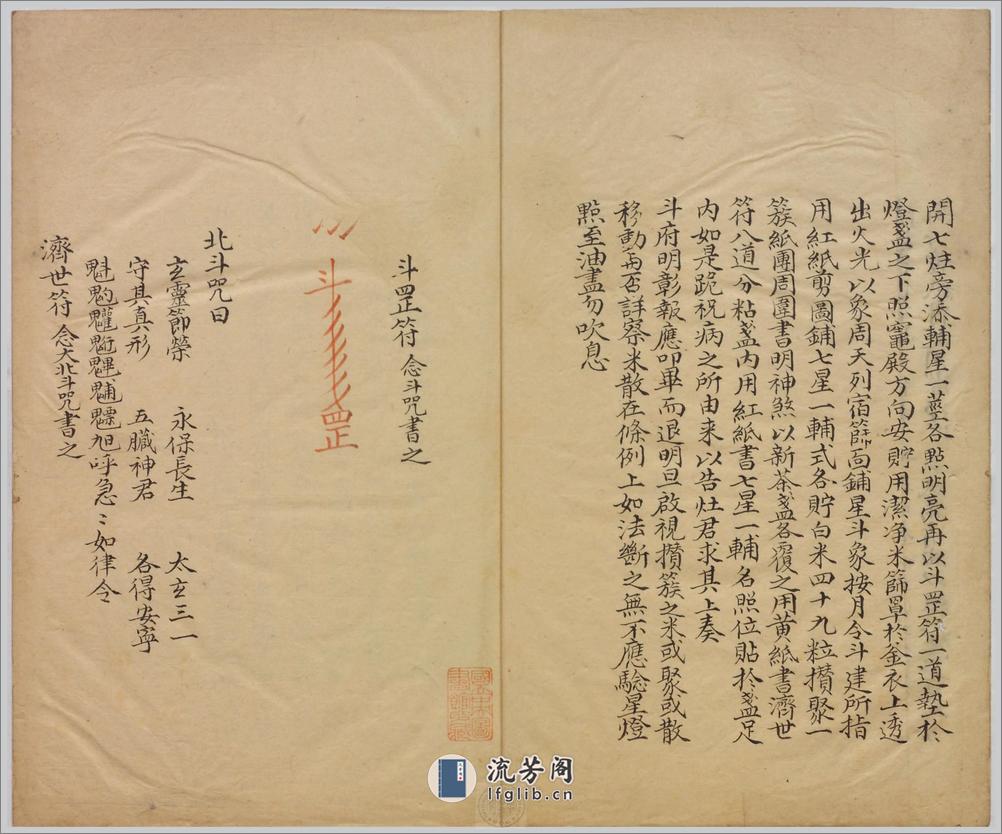 開七炷旁添輔星一莖各點明亮再以斗罡符一道墊於
燈盞之下照竈殿方向安貯用潔净米篩罩於釜衣上透
出火光以象周天列宿篩面鋪星斗象按月令斗建所指
用紅紙剪圖鋪七星一輔式各貯白米四十九粒攢聚一
簇紙團周圍書明神煞以新茶盞各覆之用黄紙書濟世
符八道分粘盞内用紅紙書七星一輔名照位貼於盞足
内如是跪祝病之所由来以告灶君求其上奏
斗府明彰報應叩畢而退明旦啟視攢簇之米或聚或散
移動與否詳察米散在條例上如法斷之無不應驗星燈
㸃至油盡勿吹息
斗罡符 念斗咒書之
斗 罡
北斗咒曰
玄靈節榮 永保長生 太玄三一
守其真形 五臟神君 各得安寧
魁𩲃䰢魓𩵄𩳐魒旭呼急〻如律令
濟世符 念大北斗咒書之
流芳阁
lfglib.cn